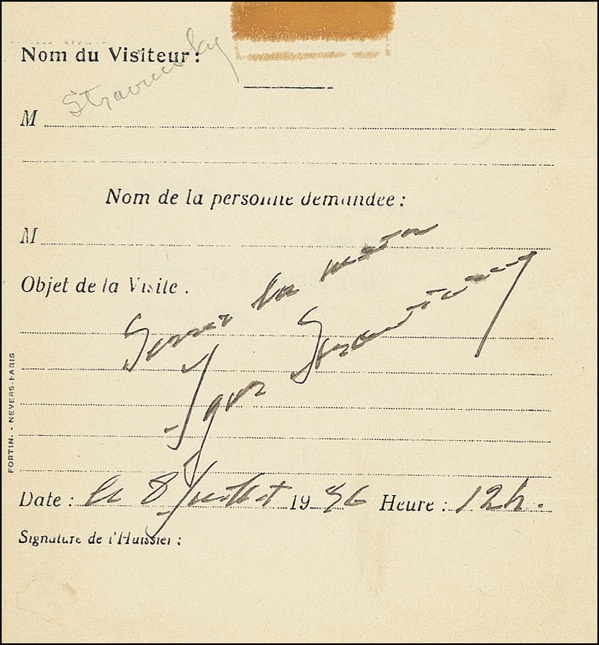 Nom du Visiteur :
Stravinsky
M
Nom de la personne demandée :
M
Objet de la Visite :
Serrer la main
Igor Strawinsky
Date : le 8 Juillet 19 Heure : 12h.
Signature de l'Huissier :
FORTIN. - NEVERS-PARIS